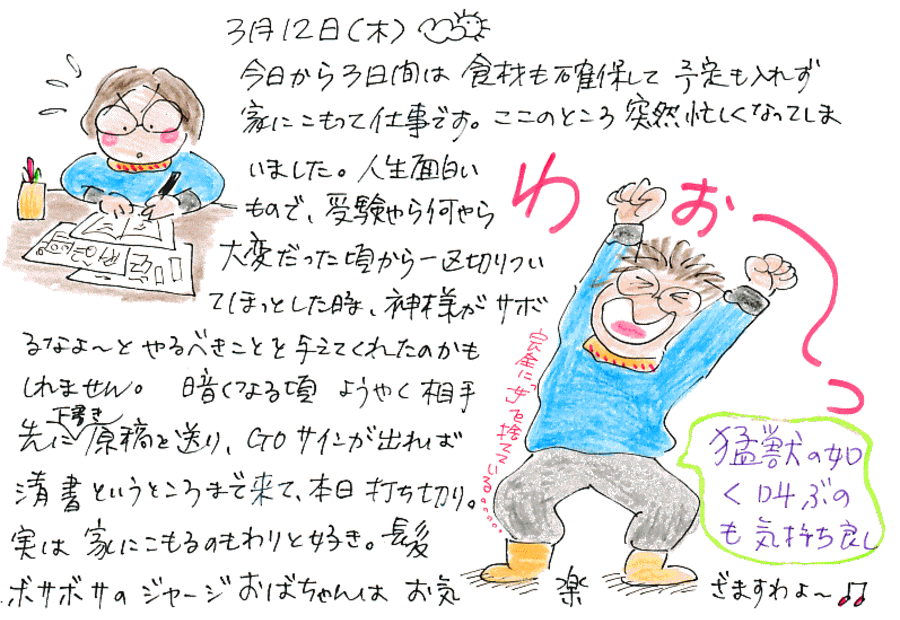 3月12日(木)
今日から3日間は 食材も確保して 予定も入れず
家にこもって仕事です。ここのところ 突然忙しくなってしま
いました。人生面白い
もので、受験やら何やら
大変だった頃から一区切りつい
てほっとした時、神様が サボ
るなよ〜と やるべきことを与えてくれたのかも
しれません。 暗くなる頃 ようやく相手
先に下書き原稿を送り、GOサインが出れば
清書というところまで来て、本日打ち切り。
実は 家にこもるのもわりと好き。髪
ボサボサの ジャージ おばちゃんは お気 楽 ざますわよ〜♫
わぉーっ
完全に"女"を捨てている。。。。。。
猛獣の如
く叫ぶの
も気持ち良し